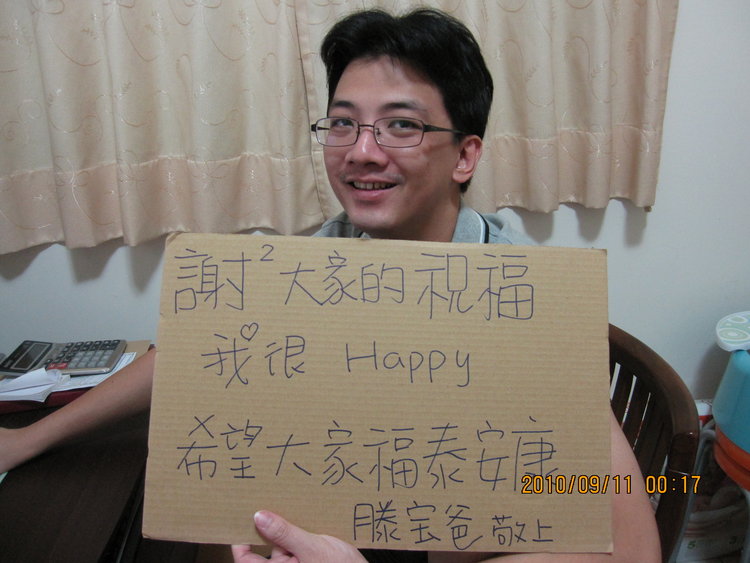 謝²大家的祝福
我很 Happy
希望大家福泰安康
滕宝爸 敬上
2010/09/11 00:17